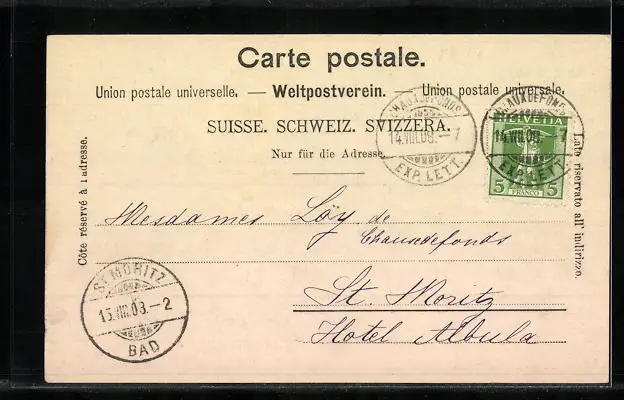 Carte postale.
Union postale universelle. — Weltpostverein. — Union postale universale.
SUISSE. SCHWEIZ. SVIZZERA.
Nur für die Adresse
Côte réservé à l'adresse.
Lato riservato all' indirizzo.
CHAUXDEFONDS
14.VIII.08.-7
EXP. LETT.
CHAUXDEFONDS
14.VIII.08.-7
EXP. LETT.
HELVETIA
5 FRANCO 5
Mesdames Loÿ de
Chauxdefonds
St. Moritz
Hotel Albula
ST. MORITZ
15.VIII.08.-2
BAD